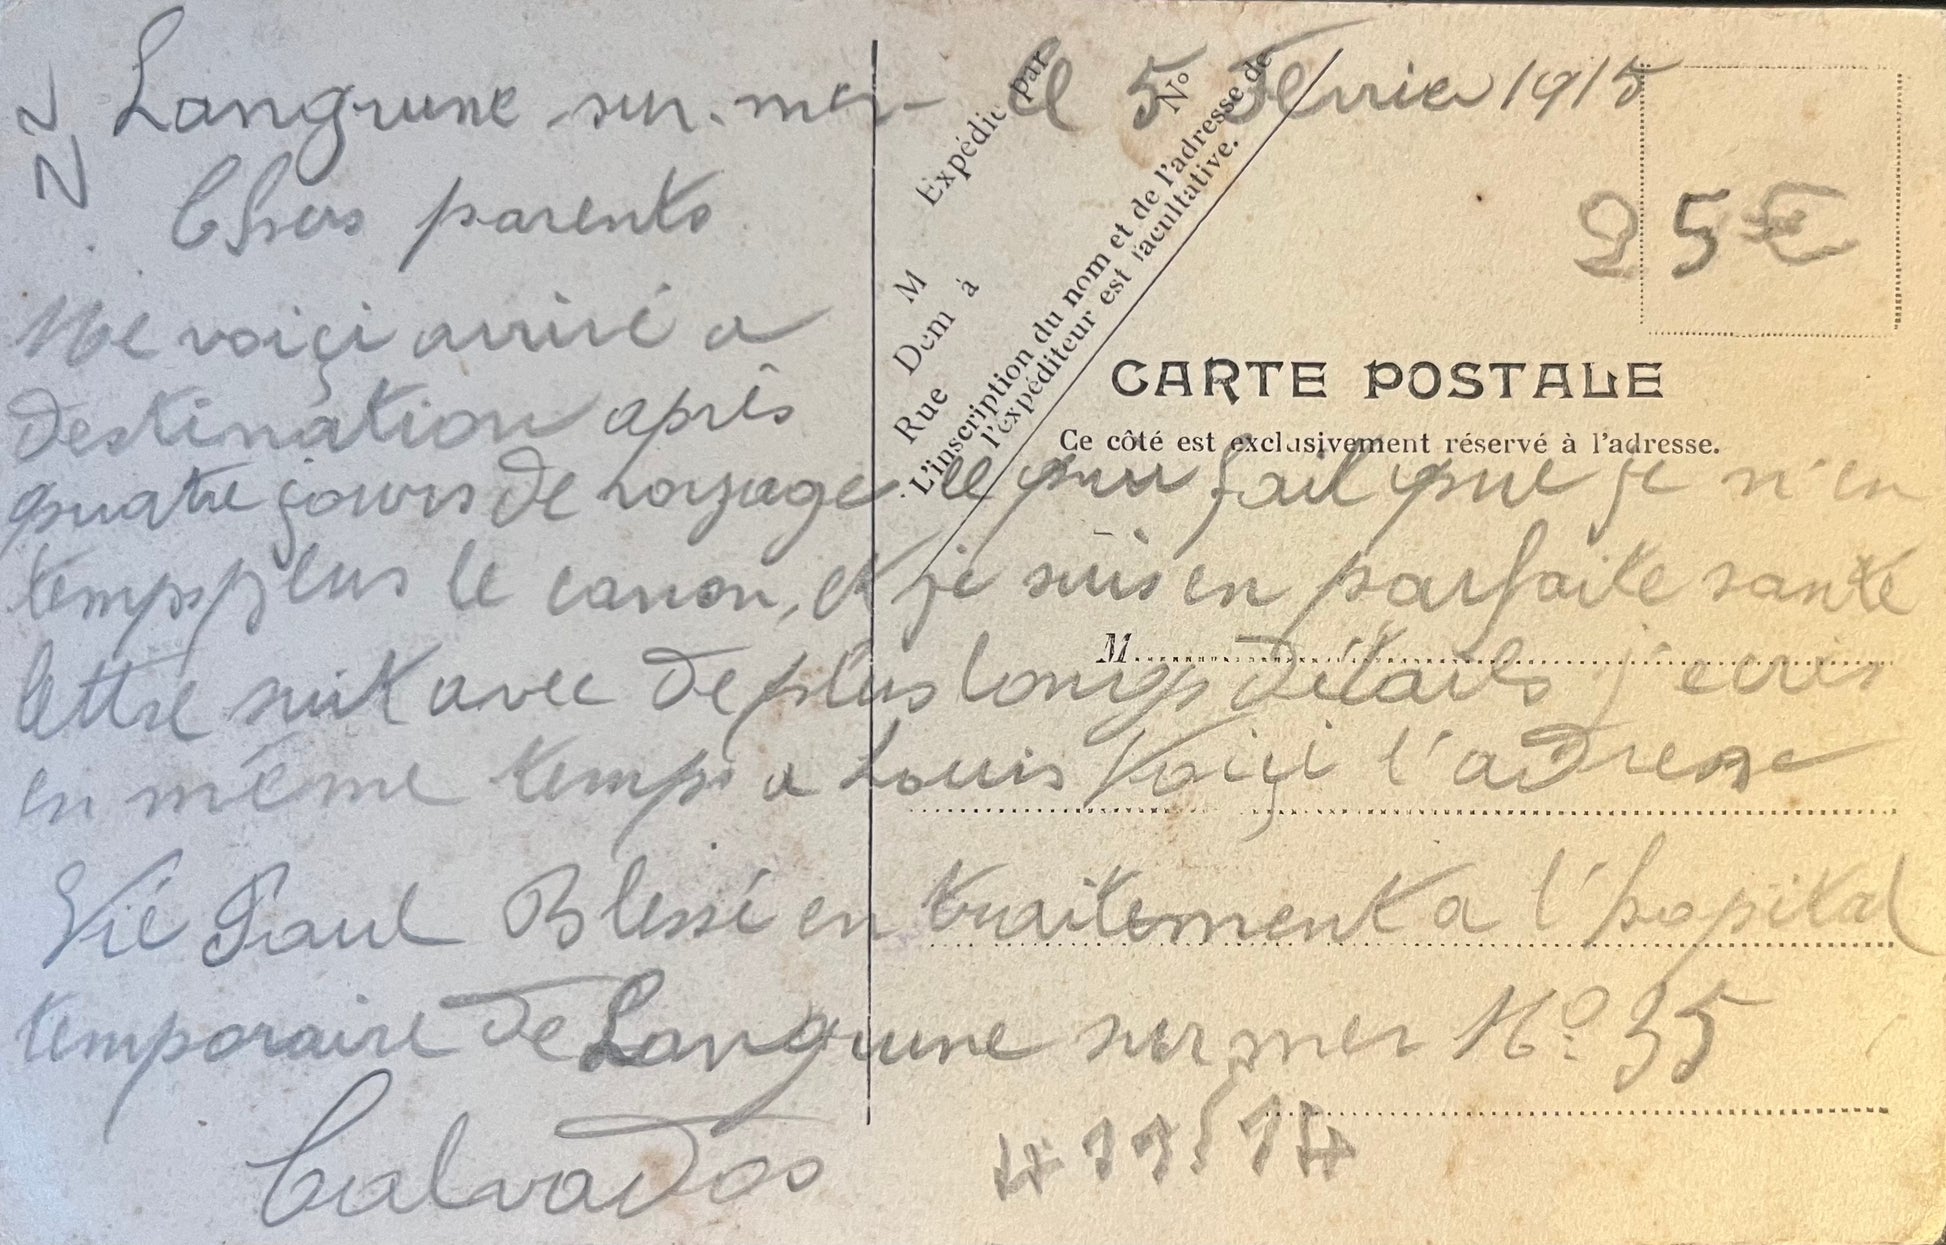 Langrune sur mer le 5 Fevrier 1915
Chers parents
Me voiçi arrivé a
destination après
quatre jours de voyage ce qui fait que je n'en
temps plus le canon, et je suis en parfaite santé
lettre suit avec de plus longs détails j'ecris
en même temps a Louis Voiçi l'adresse
Vié Paul Blessé en traitement a l'hopital
temporaire de Langrune sur mer No 35
Calvados
Expédié par
M
Demt à
Rue No
L'inscription du nom et de l'adresse de
l'expéditeur est facultative.
25€
CARTE POSTALE
Ce côté est exclusivement réservé à l'adresse.
M